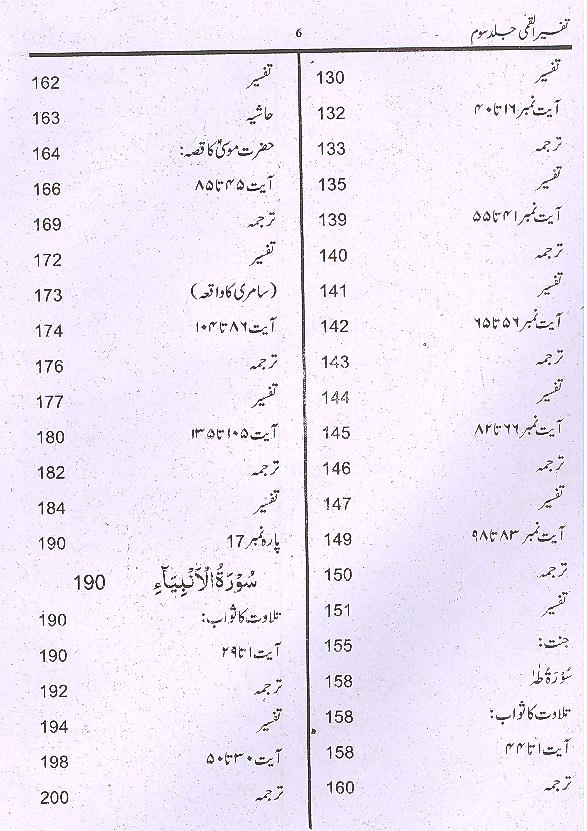 تفسیر القمی جلد سوم 6
تفسیر 130
آیت نمبر ۱۶ تا ۴۰ 132
ترجمہ 133
تفسیر 135
آیت نمبر ۴۱ تا ۵۵ 139
ترجمہ 140
تفسیر 141
آیت نمبر ۵۶ تا ۶۵ 142
ترجمہ 143
تفسیر 144
آیت نمبر ۶۶ تا ۸۲ 145
ترجمہ 146
تفسیر 147
آیت نمبر ۸۳ تا ۹۸ 149
ترجمہ 150
تفسیر 151
جنت: 155
سُوْرَۃُ طٰہٰ 158
تلاوت کا ثواب: 158
آیت ۱ تا ۴۴ 158
ترجمہ 160
تفسیر 162
حاشیہ 163
حضرت موسیٰؑ کا قصہ: 164
آیت ۴۵ تا ۸۵ 166
ترجمہ 169
تفسیر 172
(سامری کا واقعہ) 173
آیت ۸۶ تا ۱۰۴ 174
ترجمہ 176
تفسیر 177
آیت ۱۰۵ تا ۱۳۵ 180
ترجمہ 182
تفسیر 184
پارہ نمبر 17 190
سُوْرَةُ الْاَنْۢبِیَآءِ 190
تلاوت کا ثواب: 190
آیت ۱ تا ۲۹ 190
ترجمہ 192
تفسیر 194
آیت ۳۰ تا ۵۰ 198
ترجمہ 200